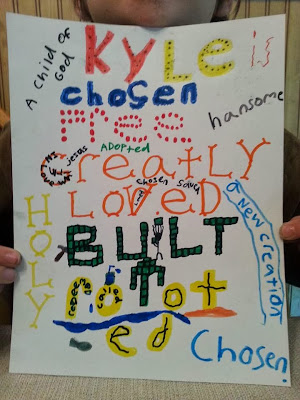 A child of God
Kyle is
chosen
free
hansome
Jesus
Adopted
Greatly
chosen
Loved
a new creation
HOLY
BUILT
IN
rooted
Chosen!